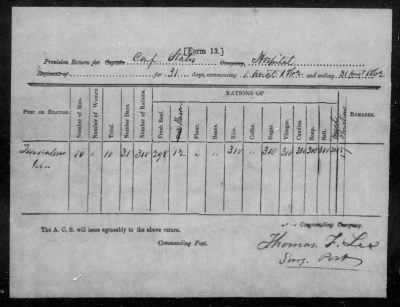 [Form 13.]
Provision Return for Captain Conf. States Company, Hospital
Regiment of for 31 days, commencing 1 August 1862 and ending 31 August 1862
RATIONS OF
Post or Station. Number of Men. Number of Women. Total. Number Days. Number of Rations. Fresh Beef. Bacon Flour. Beans. Rice. Coffee. Sugar. Vinegar. Candles. Soap. Salt. Remarks.
10 " 10 31 310 298 12 " " 310 " 310 310 310 310 310
The A. C. S. will issue agreeably to the above return.
Commanding Company.
Commanding Post.
Thomas F. Lee
Surg. Post